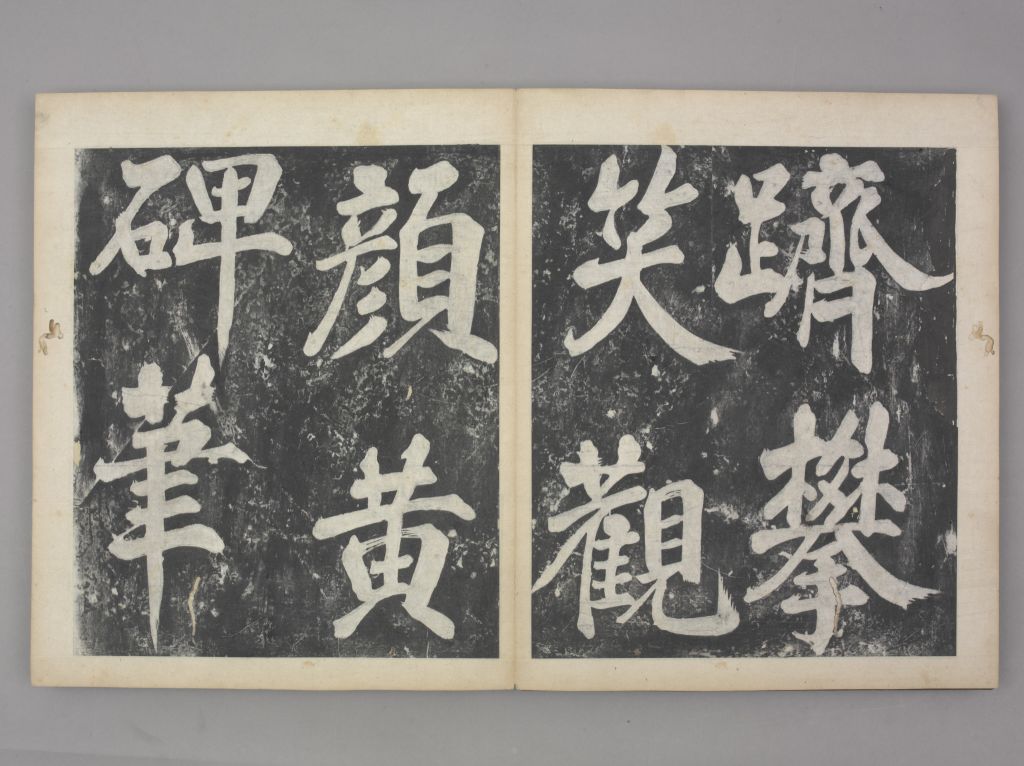 躋攀
笑觀
顏黃
碑筆